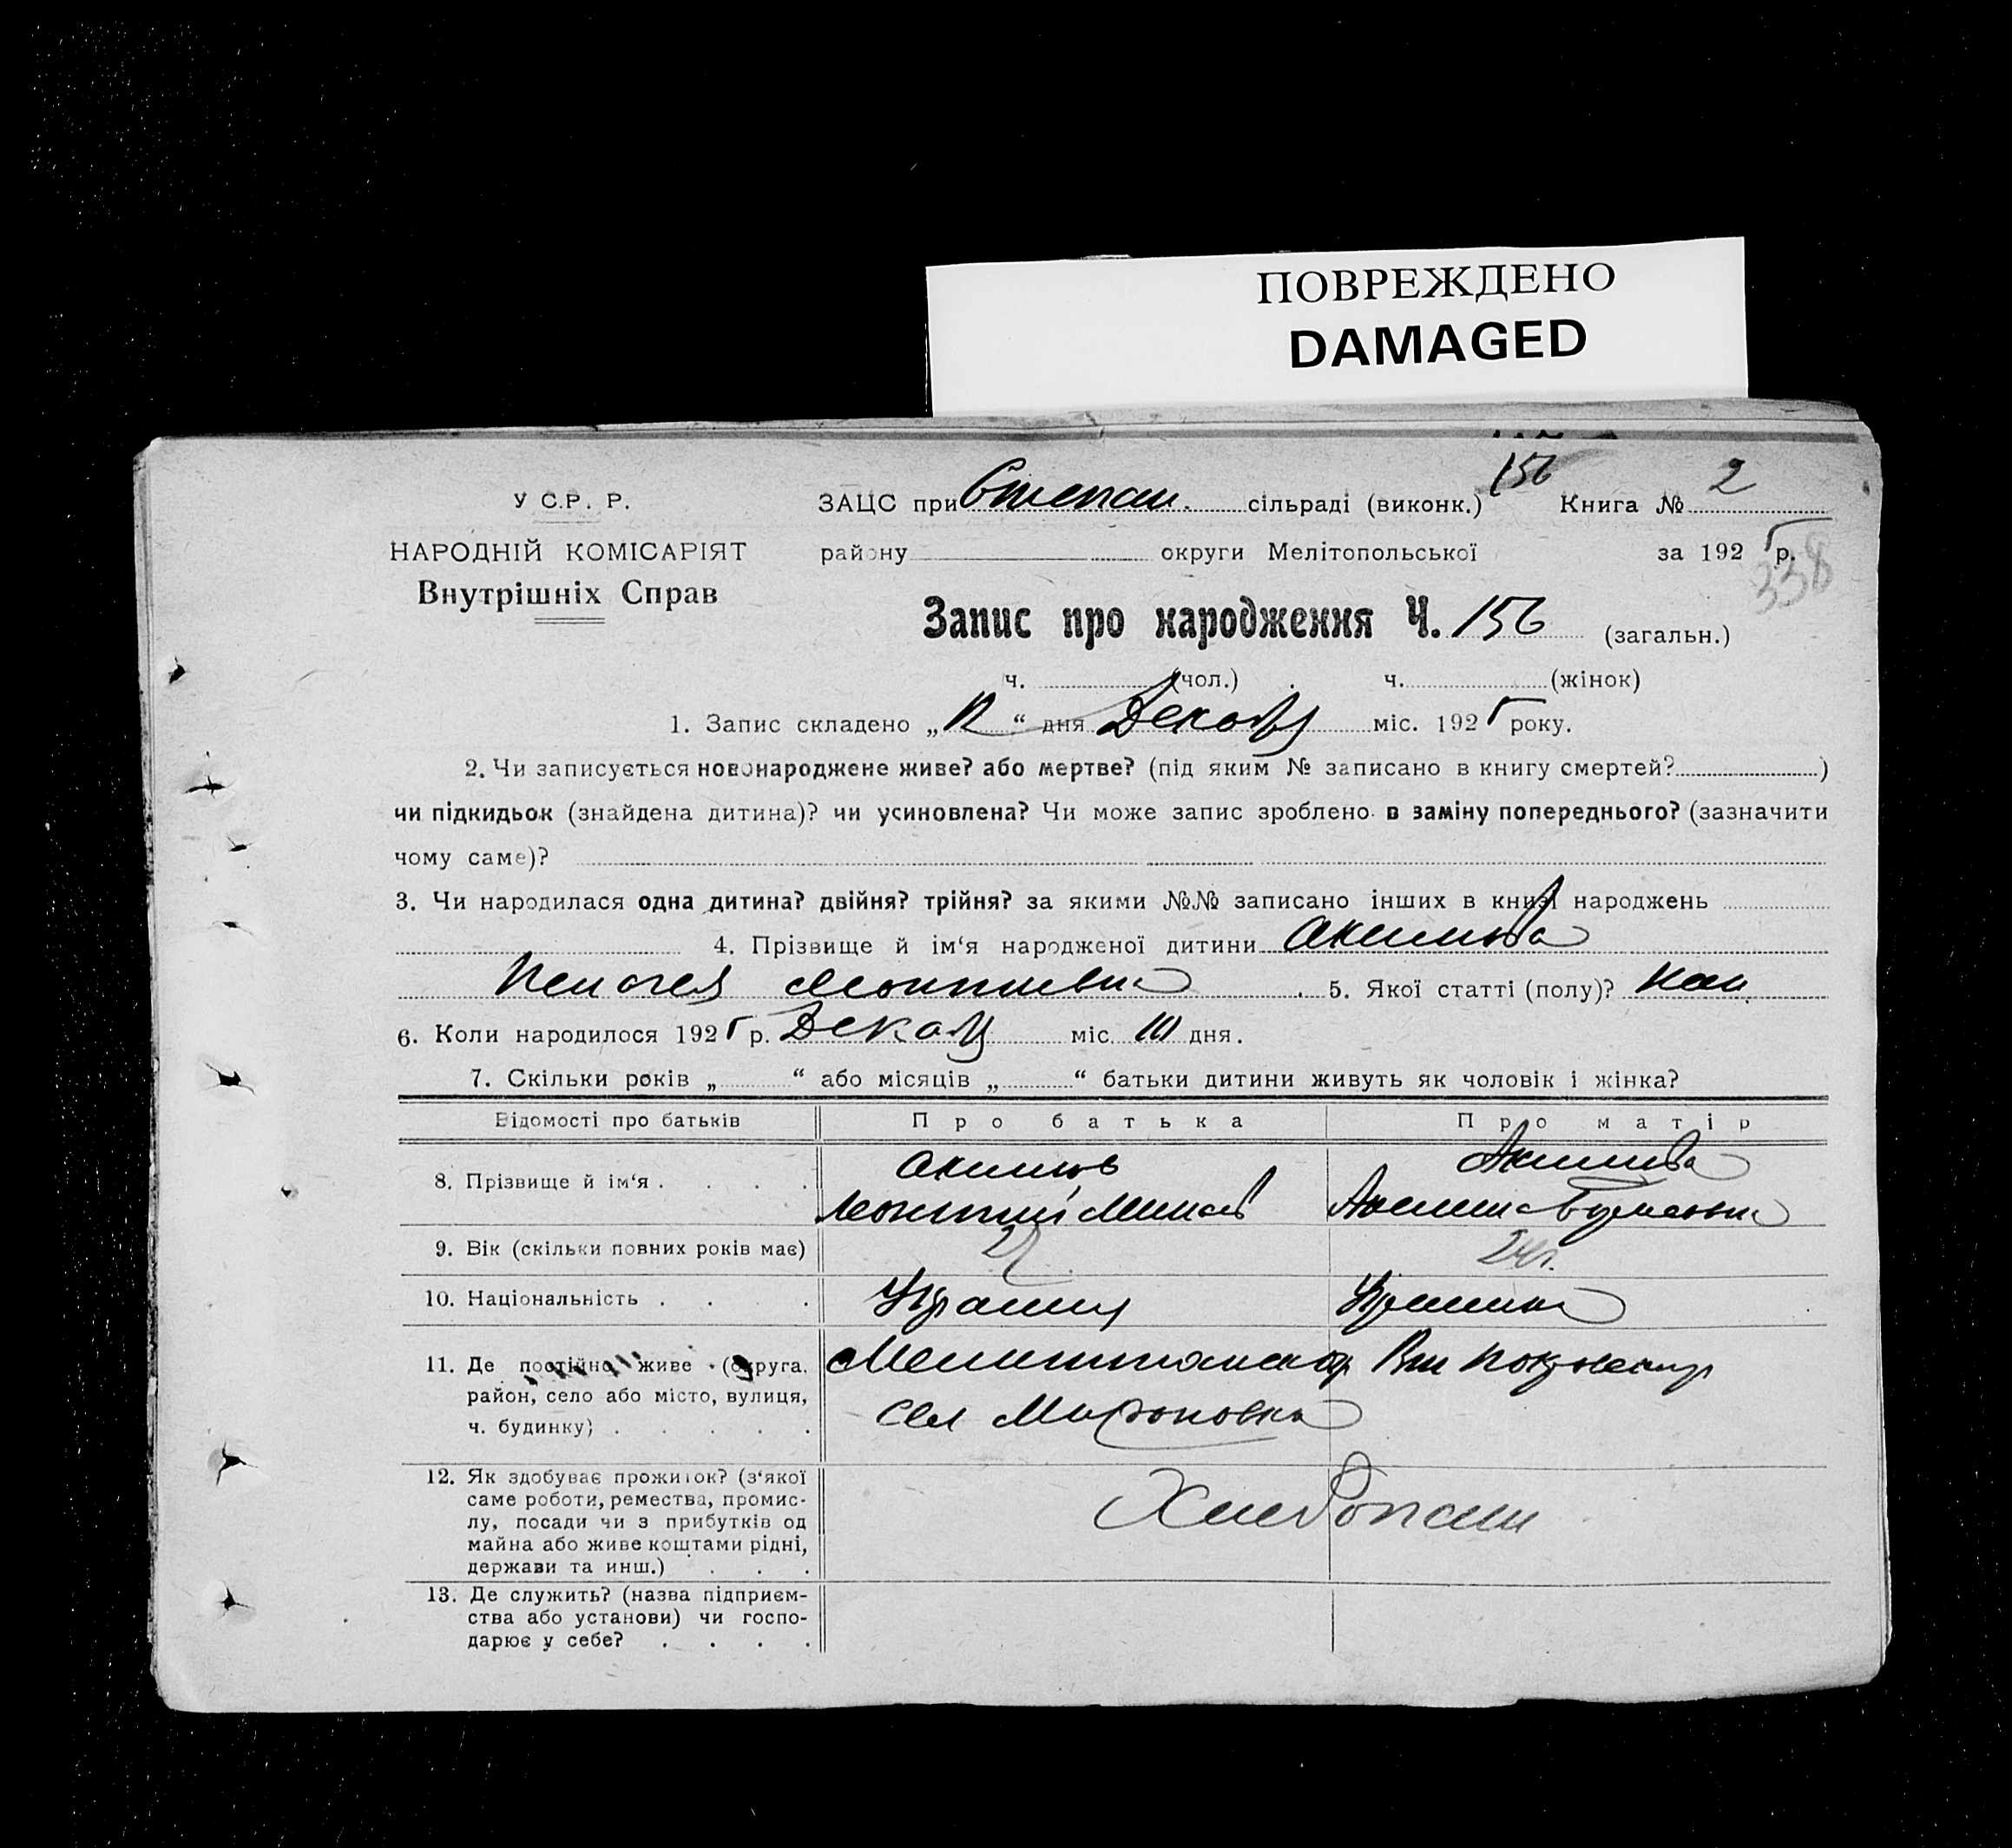 ПОВРЕЖДЕНО
DAMAGED
156
У С.Р. Р.
ЗАЦС при Степан. сільраді (виконк.) Книга № 2
НАРОДНІЙ КОМІСАРІЯТ
району округи Мелітопольської за 1925 р.
338
Внутрішніх Справ
Запис про народження Ч. 156 (загальн.)
ч. (чол.) ч. (жінок)
1. Запис складено „12“ дня Декабр міс. 1925 року.
2. Чи записується новонароджене живе? або мертве? (під яким № записано в книгу смертей? )
чи підкидьок (знайдена дитина)? чи усиновлена? Чи може запис зроблено в заміну попереднього? (зазначити
чому саме)?
3. Чи народилася одна дитина? двійня? трійня? за якими №№ записано інших в книзі народжень
4. Прізвище й ім‘я народженої дитини Акимова
5. Якої статті (полу)?
6. Коли народилося 1925 р. Декабр міс. 10 дня.
7. Скільки років „ “ або місяців „ “ батьки дитини живуть як чоловік і жінка?
Відомості про батьків Про батька Про матір
8. Прізвище й ім‘я . . . . Акимов Акимова
9. Вік (скільки повних років має) 24г.
10. Національність . . . .
11. Де постійно живе (округа,
район, село або місто, вулиця,
ч. будинку) . . . . . сел Мироновка
12. Як здобуває прожиток? (з‘якої
саме роботи, ремества, промис-
лу, посади чи з прибутків од
майна або живе коштами рідні,
держави та инш.) . . . Хлебопаш
13. Де служить? (назва підприєм-
ства або установи) чи госпо-
дарює у себе? . . . .